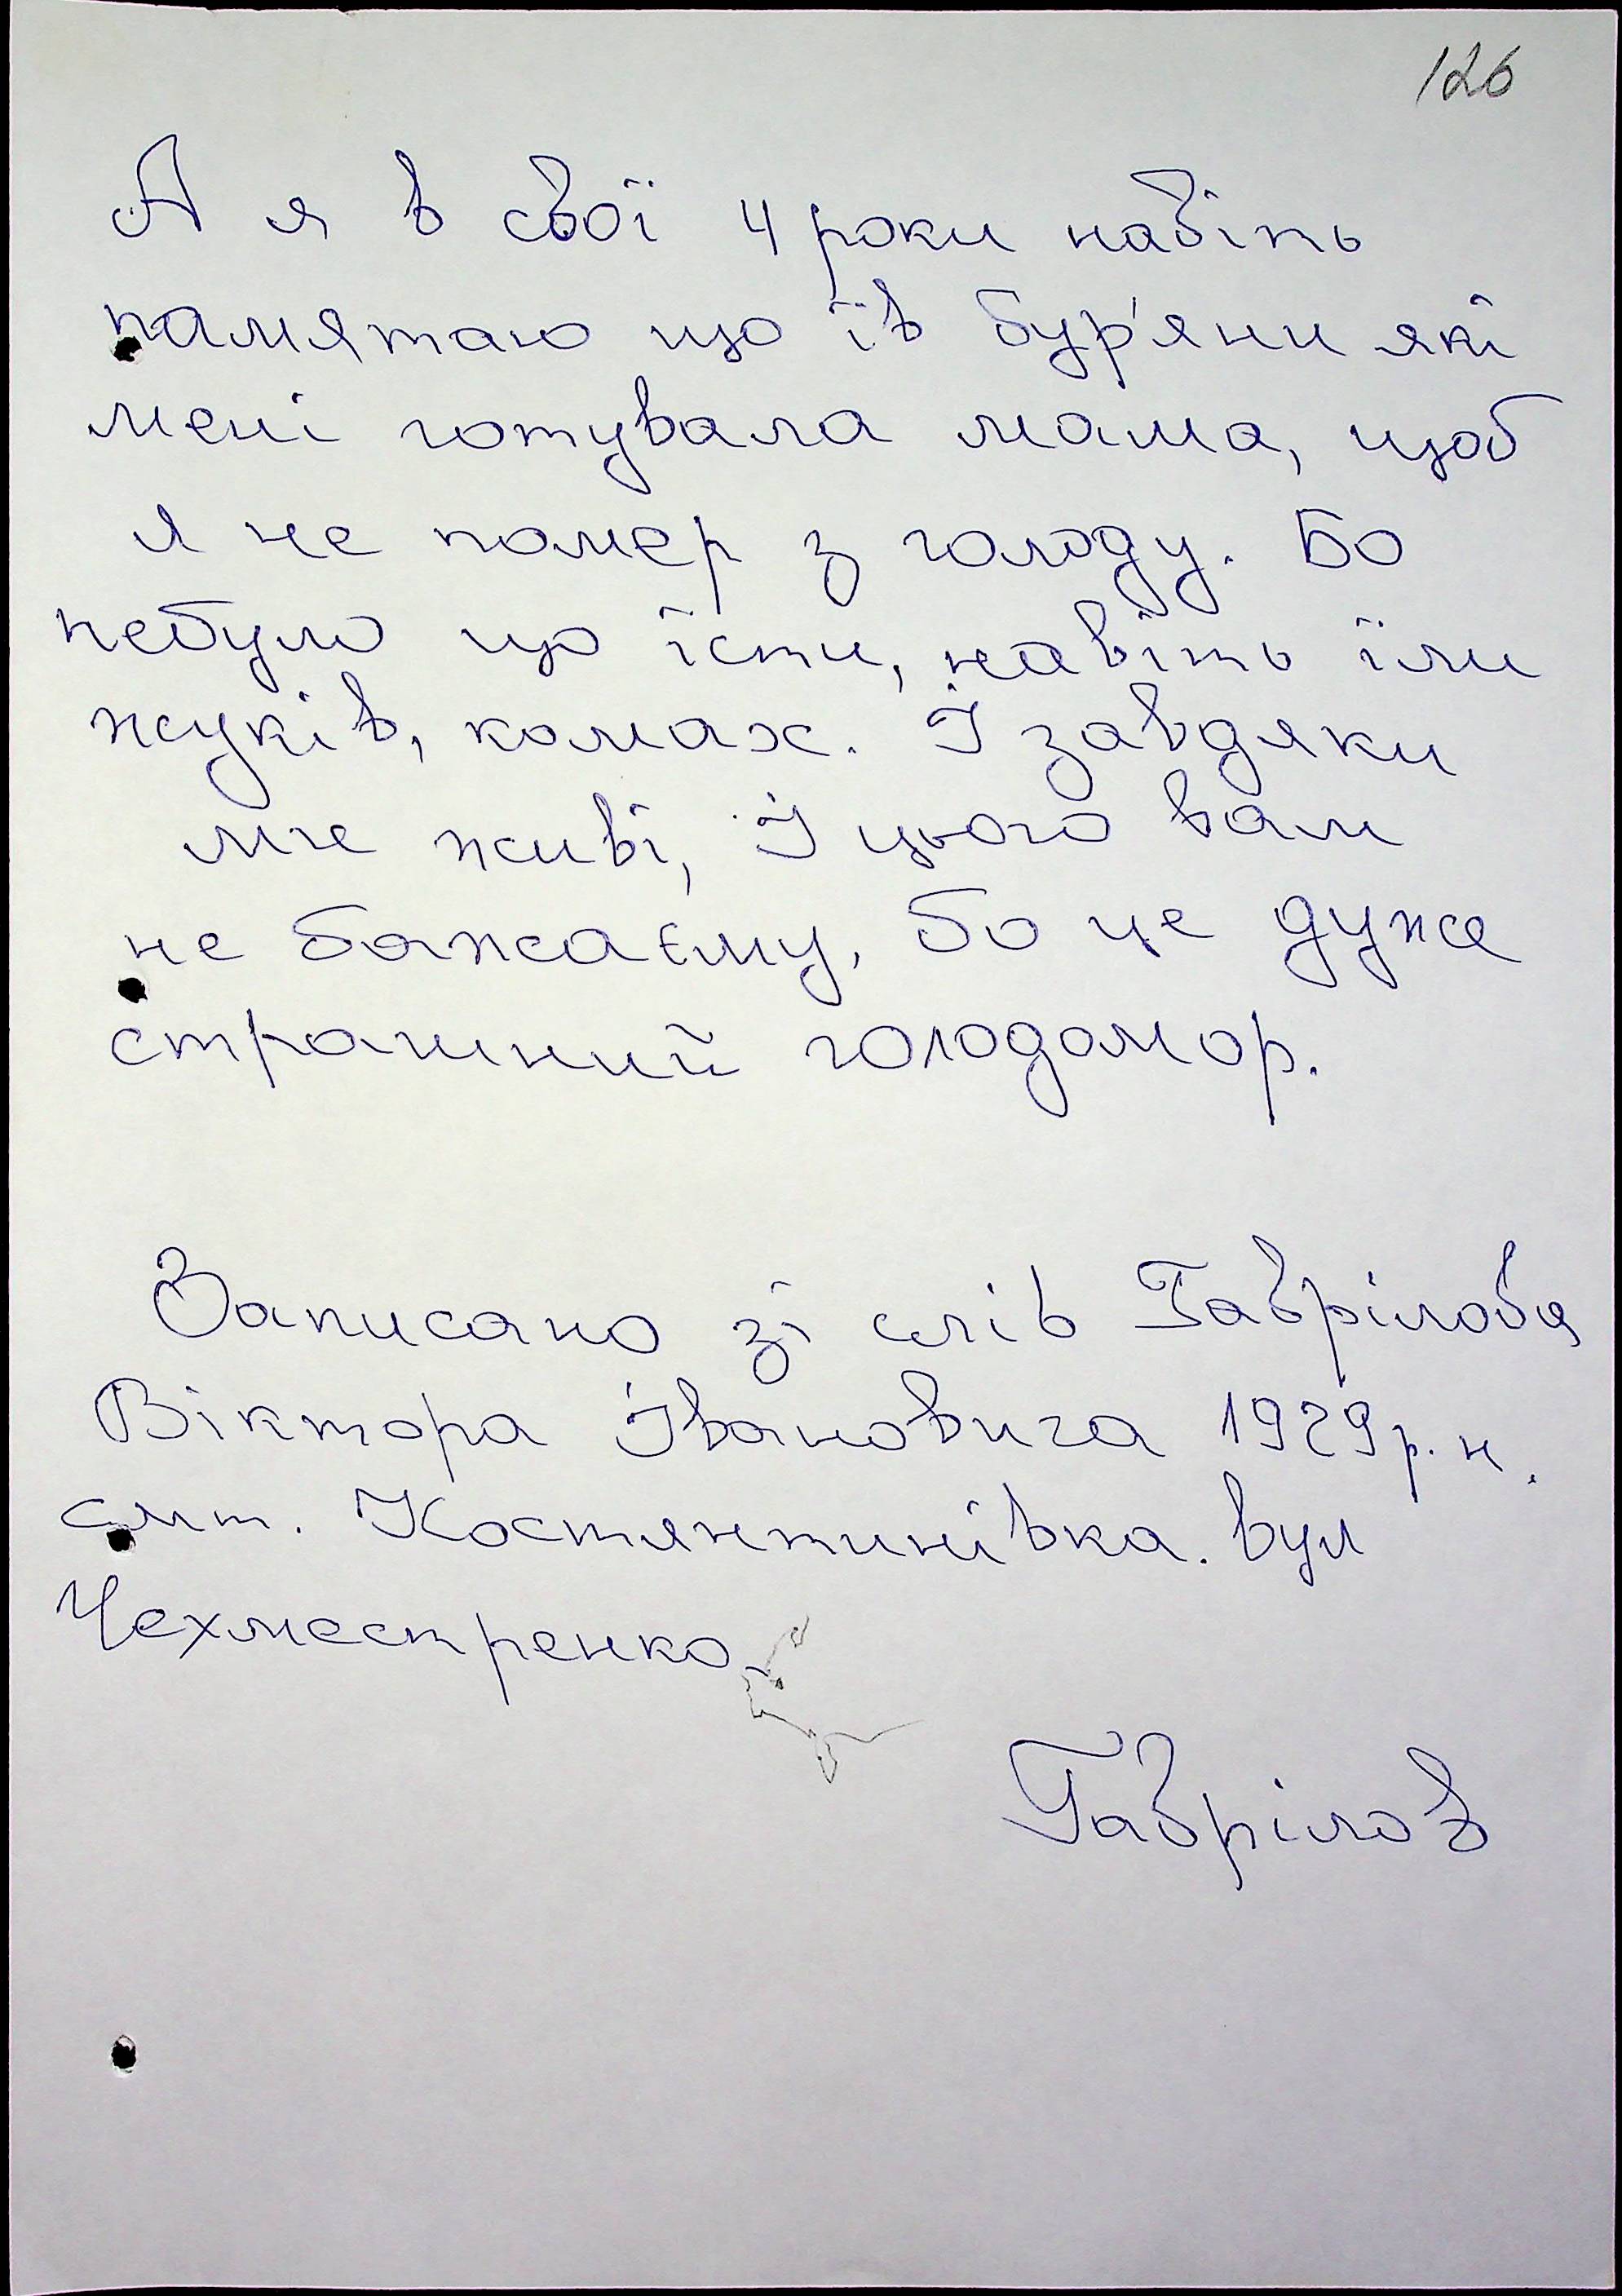 126
А я в свої 4 роки навіть
памятаю що їв бур'яни які
мені готувала мама, щоб
я не помер з голоду. Бо
небуло що їсти, навіть їли
жуків, комах. І завдяки
живі, І цього вам
не бажаєму, бо це дуже
страшний голодомор.
Записано зі слів Гаврілова
Віктора Івановича 1929р. н.
смт. Костянтинівка. вул
Чехместренко.
Гаврілов